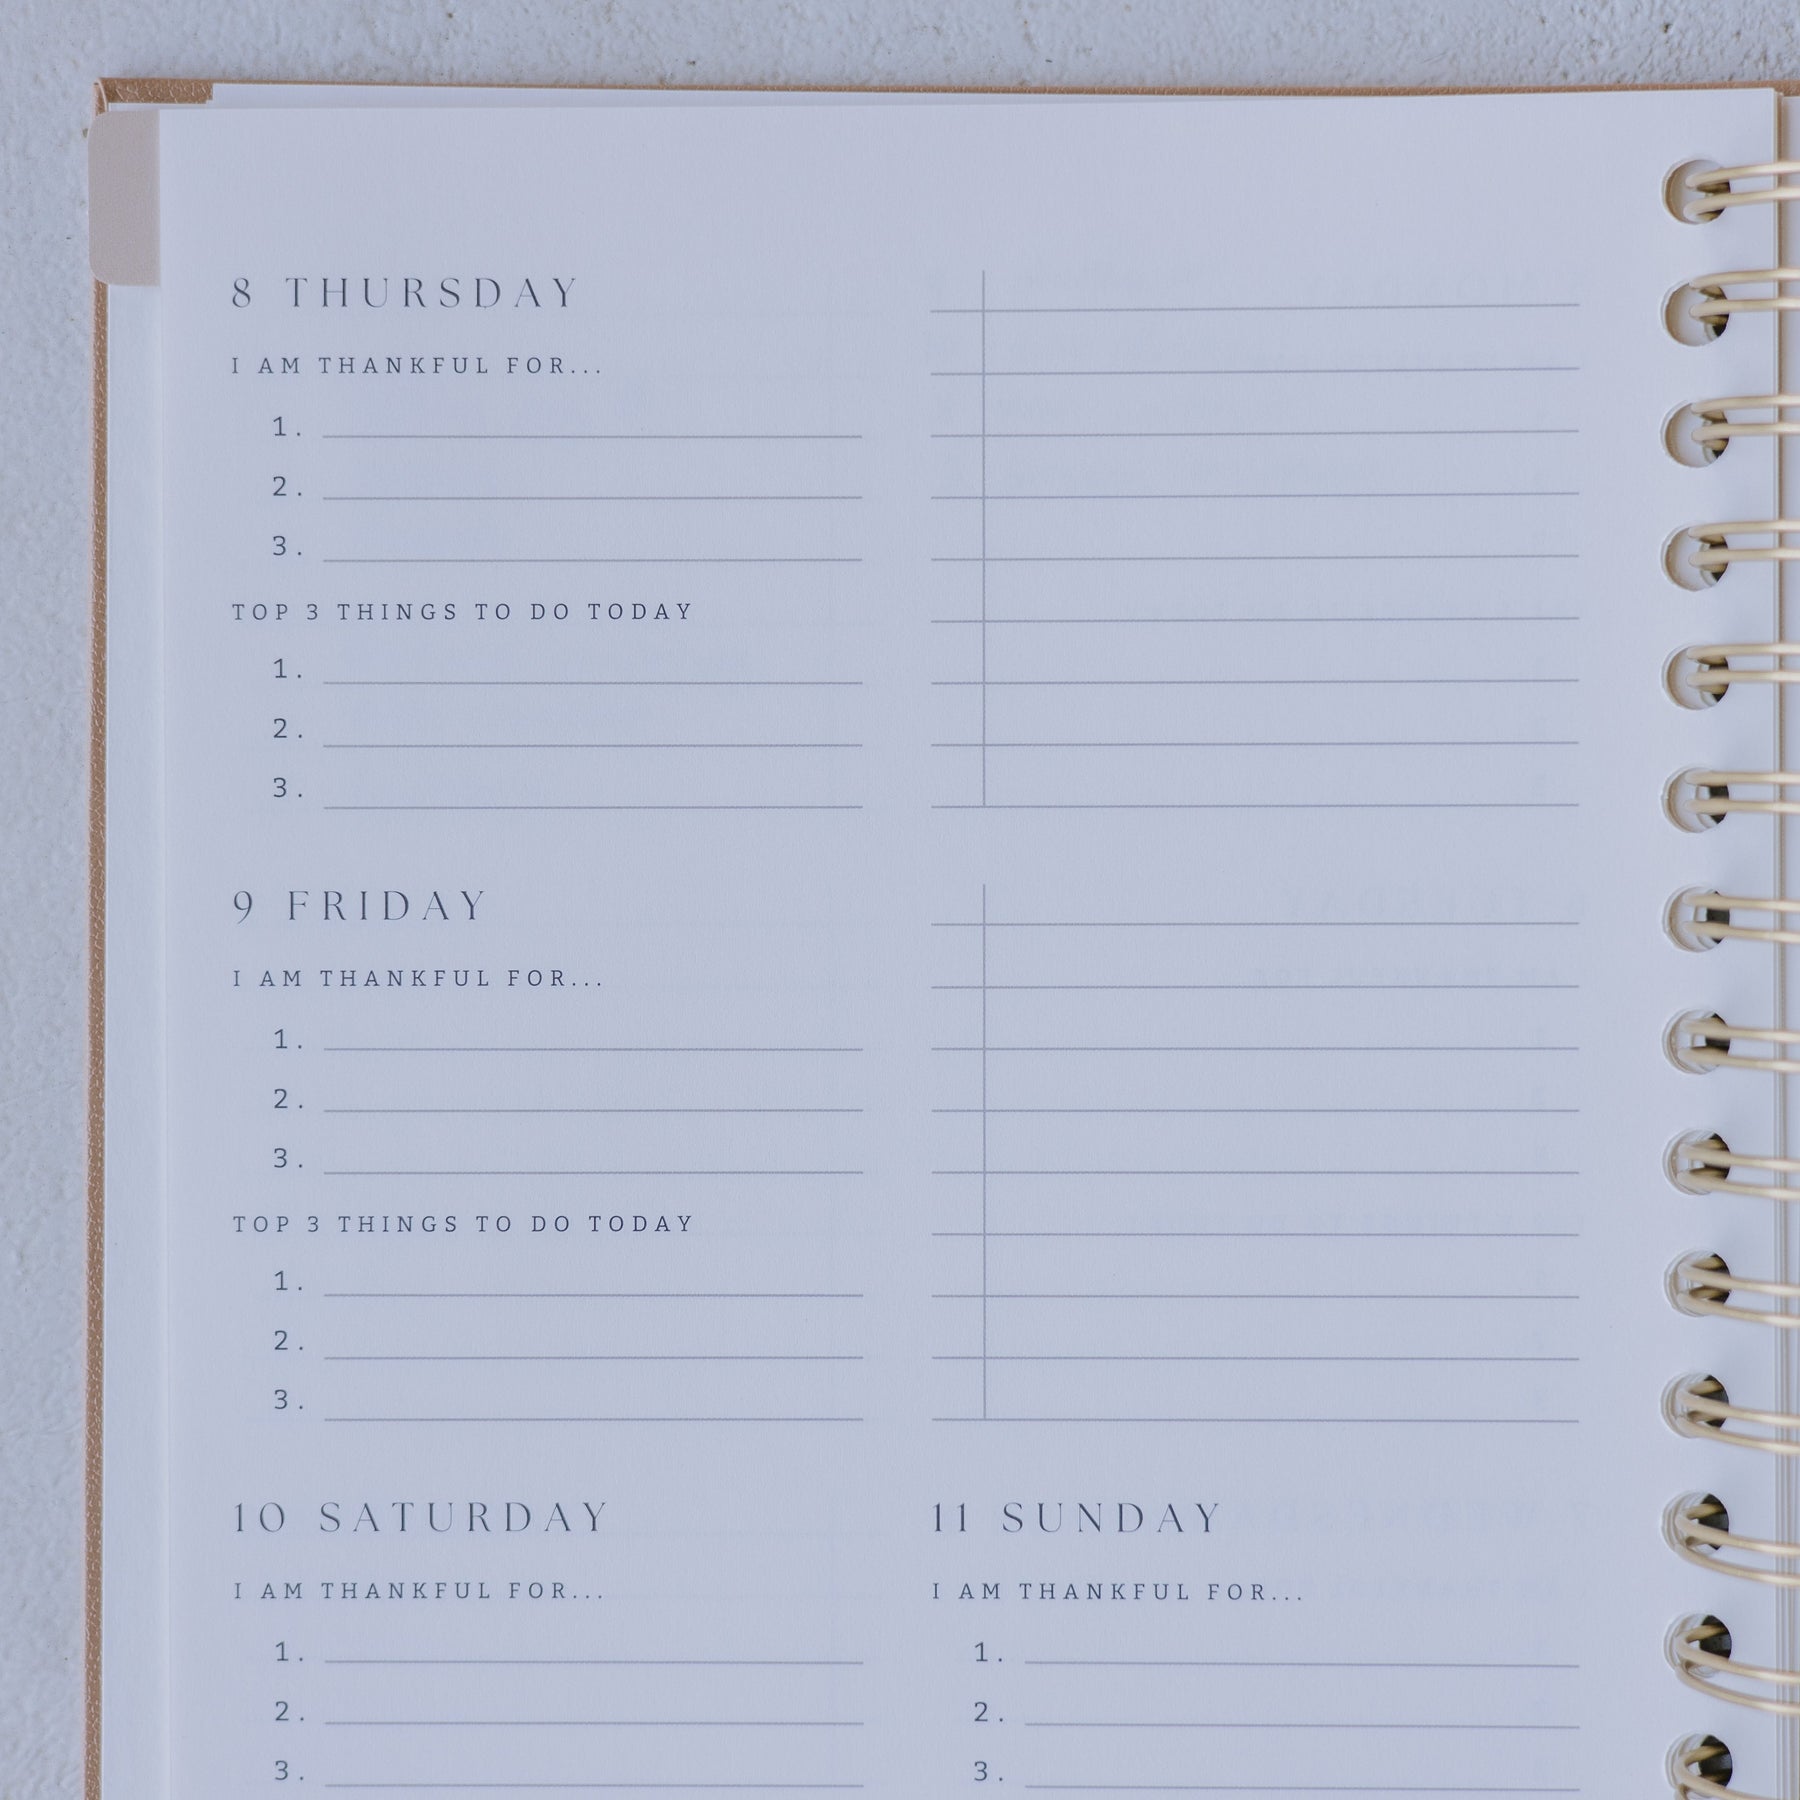 8 THURSDAY
I AM THANKFUL FOR...
1.
2.
3.
TOP 3 THINGS TO DO TODAY
1.
2.
3.
9 FRIDAY
I AM THANKFUL FOR...
1.
2.
3.
TOP 3 THINGS TO DO TODAY
1.
2.
3.
10 SATURDAY
I AM THANKFUL FOR...
1.
2.
3.
11 SUNDAY
I AM THANKFUL FOR...
1.
2.
3.